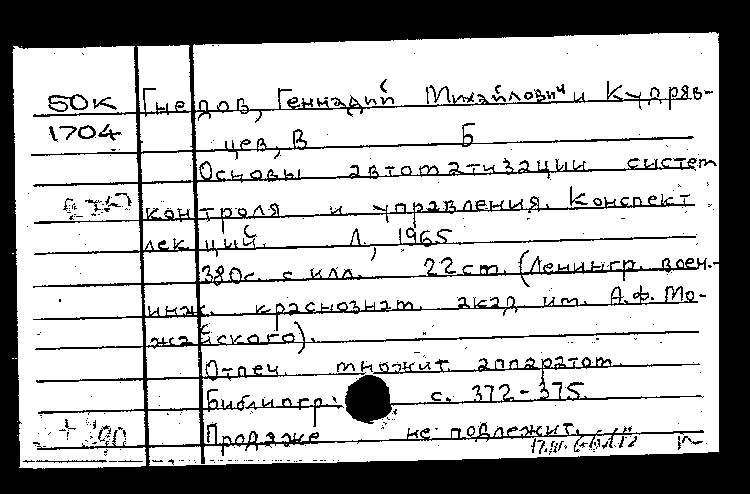 50К Гнедов, Геннадий Михайлович и Кудряв-
1704 цев, В Б
Основы автоматизации систем
контроля и управления. Конспект
лекций. Л., 1965
380с. с илл. 22 ст. (Ленингр. воен.-
инж. краснознам. акад им. А.Ф. Мо-
жайского).
Отпеч. множит. аппаратом.
Библиогр: с. 372-375
+ 90 Продаже не подлежит.